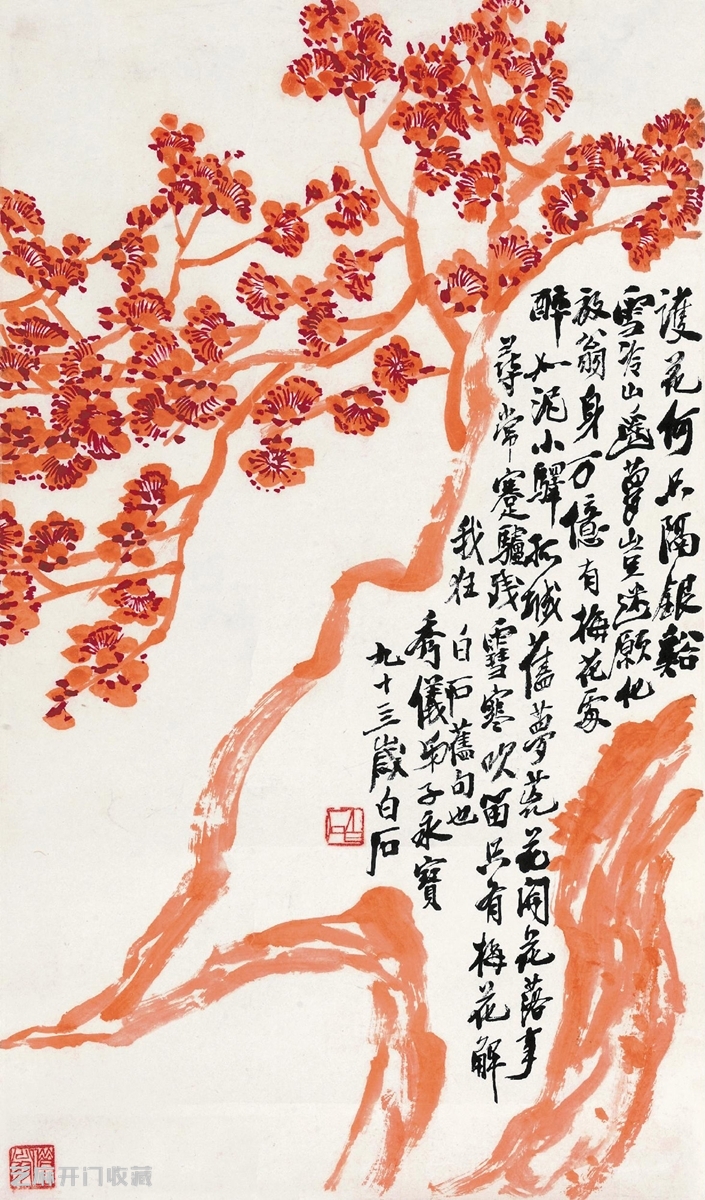 護花何只隔銀谿
雪冷山遙夢豈迷願化
放翁身万億有梅花處
醉如泥小驛孤城舊夢荒花開花落事
尋常蹇驢殘雪寒吹笛只有梅花解
我狂 白石舊句也
秀儀弟子永寶
九十三歲白石
芝麻开门收藏